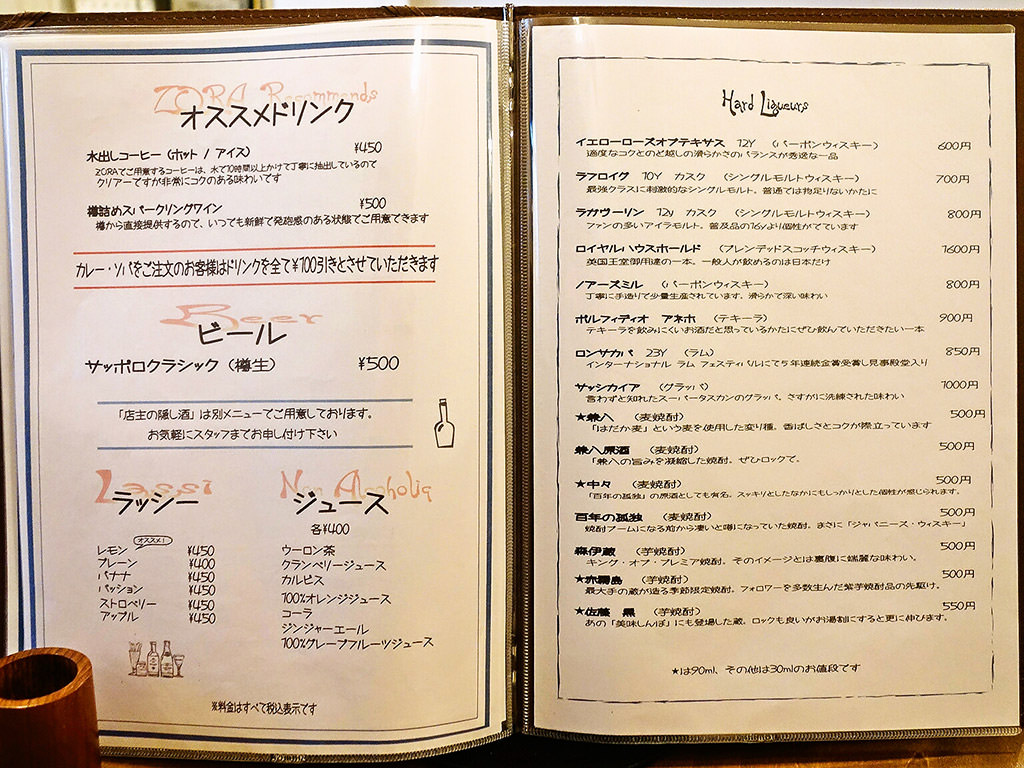 ZORA Recommends
オススメドリンク
水出しコーヒー（ホット / アイス） ¥450
ZORAでご用意するコーヒーは、水で10時間以上かけて丁寧に抽出しているので
クリアーですが非常にコクのある味わいです
樽詰めスパークリングワイン ¥500
樽から直接提供するので、いつでも新鮮で発砲感のある状態でご用意できます
カレー・ソバをご注文のお客様はドリンクを全て¥100引きとさせていただきます
Beer
ビール
サッポロクラシック（樽生） ¥500
「店主の隠し酒」は別メニューでご用意しております。
お気軽にスタッフまでお申し付け下さい
Lassi
ラッシー
オススメ！
レモン ¥450
プレーン ¥400
バナナ ¥450
パッション ¥450
ストロベリー ¥450
アップル ¥450
Non Alcoholiq
ジュース
各¥400
ウーロン茶
クランベリージュース
カルピス
100%オレンジジュース
コーラ
ジンジャーエール
100%グレープフルーツジュース
※料金はすべて税込表示です
Hard Liqueurs
イエローローズオブテキサス 12Y （バーボンウィスキー） 600円
適度なコクとのど越しの滑らかさのバランスが秀逸な一品
ラフロイグ 10Y カスク （シングルモルトウィスキー） 700円
最強クラスに刺激的なシングルモルト。普通では物足りないかたに
ラガヴーリン 12y カスク （シングルモルトウィスキー） 800円
ファンの多いアイラモルト。普及品の16yより個性がでています
ロイヤルハウスホールド （ブレンデッドスコッチウィスキー） 1600円
英国王室御用達の一本。一般人が飲めるのは日本だけ
ノアーズミル （バーボンウィスキー） 800円
丁寧に手造りで少量生産されています。滑らかで深い味わい
ポルフィディオ アネホ （テキーラ） 900円
テキーラを飲みにくいお酒だと思っているかたにぜひ飲んでいただきたい一本
ロンサカパ 23Y （ラム） 850円
インターナショナル ラム フェスティバルにて5年連続金賞受賞し見事殿堂入り
サッシカイア （グラッパ） 1000円
言わずと知れたスーパータスカンのグラッパ。さすがに洗練された味わい
★兼八 （麦焼酎） 500円
「はだか麦」という麦を使用した変り種。香ばしさとコクが際立っています
兼八原酒 （麦焼酎） 500円
「兼八の旨みを凝縮した焼酎。ぜひロックで。
★中々 （麦焼酎） 500円
「百年の孤独」の原酒としても有名。スッキリとしたなかにもしっかりとした個性が感じられます。
百年の孤独 （麦焼酎） 500円
焼酎ブームになる前から凄いと噂になっていた焼酎。まさに「ジャパニーズ・ウィスキー」
森伊蔵 （芋焼酎） 500円
キング・オブ・プレミア焼酎。そのイメージとは裏腹に端麗な味わい。
★赤霧島 （芋焼酎） 500円
最大手の蔵が造る季節限定焼酎。フォロワーを多数生んだ紫芋焼酎品の先駆け。
★佐藤 黒 （芋焼酎） 550円
あの「美味しんぼ」にも登場した蔵。ロックも良いがお湯割にすると更に伸びます。
★は90ml、その他は30mlのお値段です